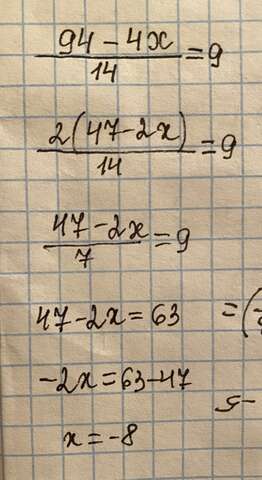 (94 - 4x)/14 = 9
2(47-2x)/14 = 9
(47-2x)/7 = 9
47-2x = 63
-2x = 63-47
x = -8
=(